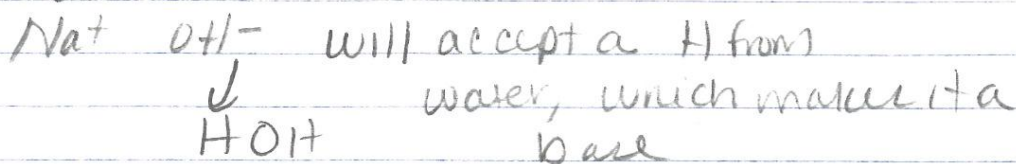 Na+ OH- will accept a H from
↓ water, which makes it a
HOH base